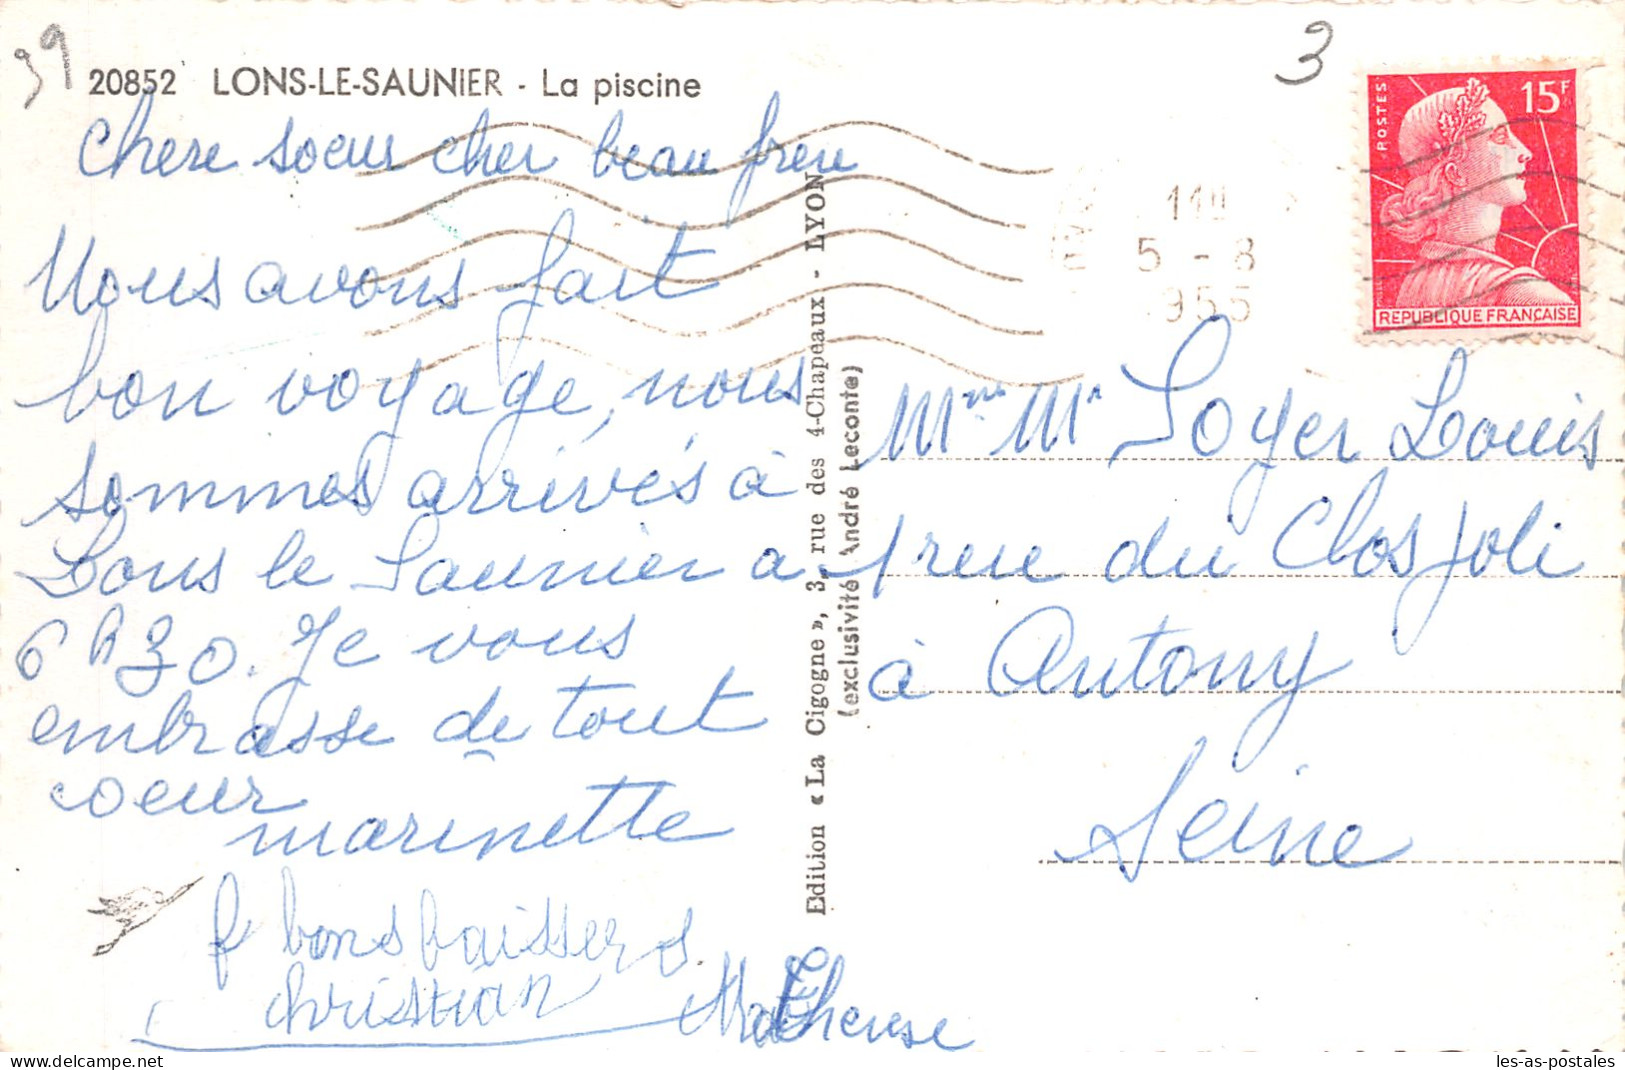 39
3
20852 LONS-LE-SAUNIER - La piscine
POSTES
15F
REPUBLIQUE FRANÇAISE
5 - 8
1955
chere soeur cher beau frere
Nous avons fait
bon voyage, nous
sommes arrivés à
Lons le Saunier a
6 h 30. Je vous
embrasse de tout
coeur
marinette
bons baissers
christian
Mathérese
Edition « La Cigogne », 3, rue des 4-Chapeaux - LYON
(exclusivité André Leconte)
Mme Mr Loyer Louis
1 rue du Clos Joli
à Antony
Seine
les-as-postales